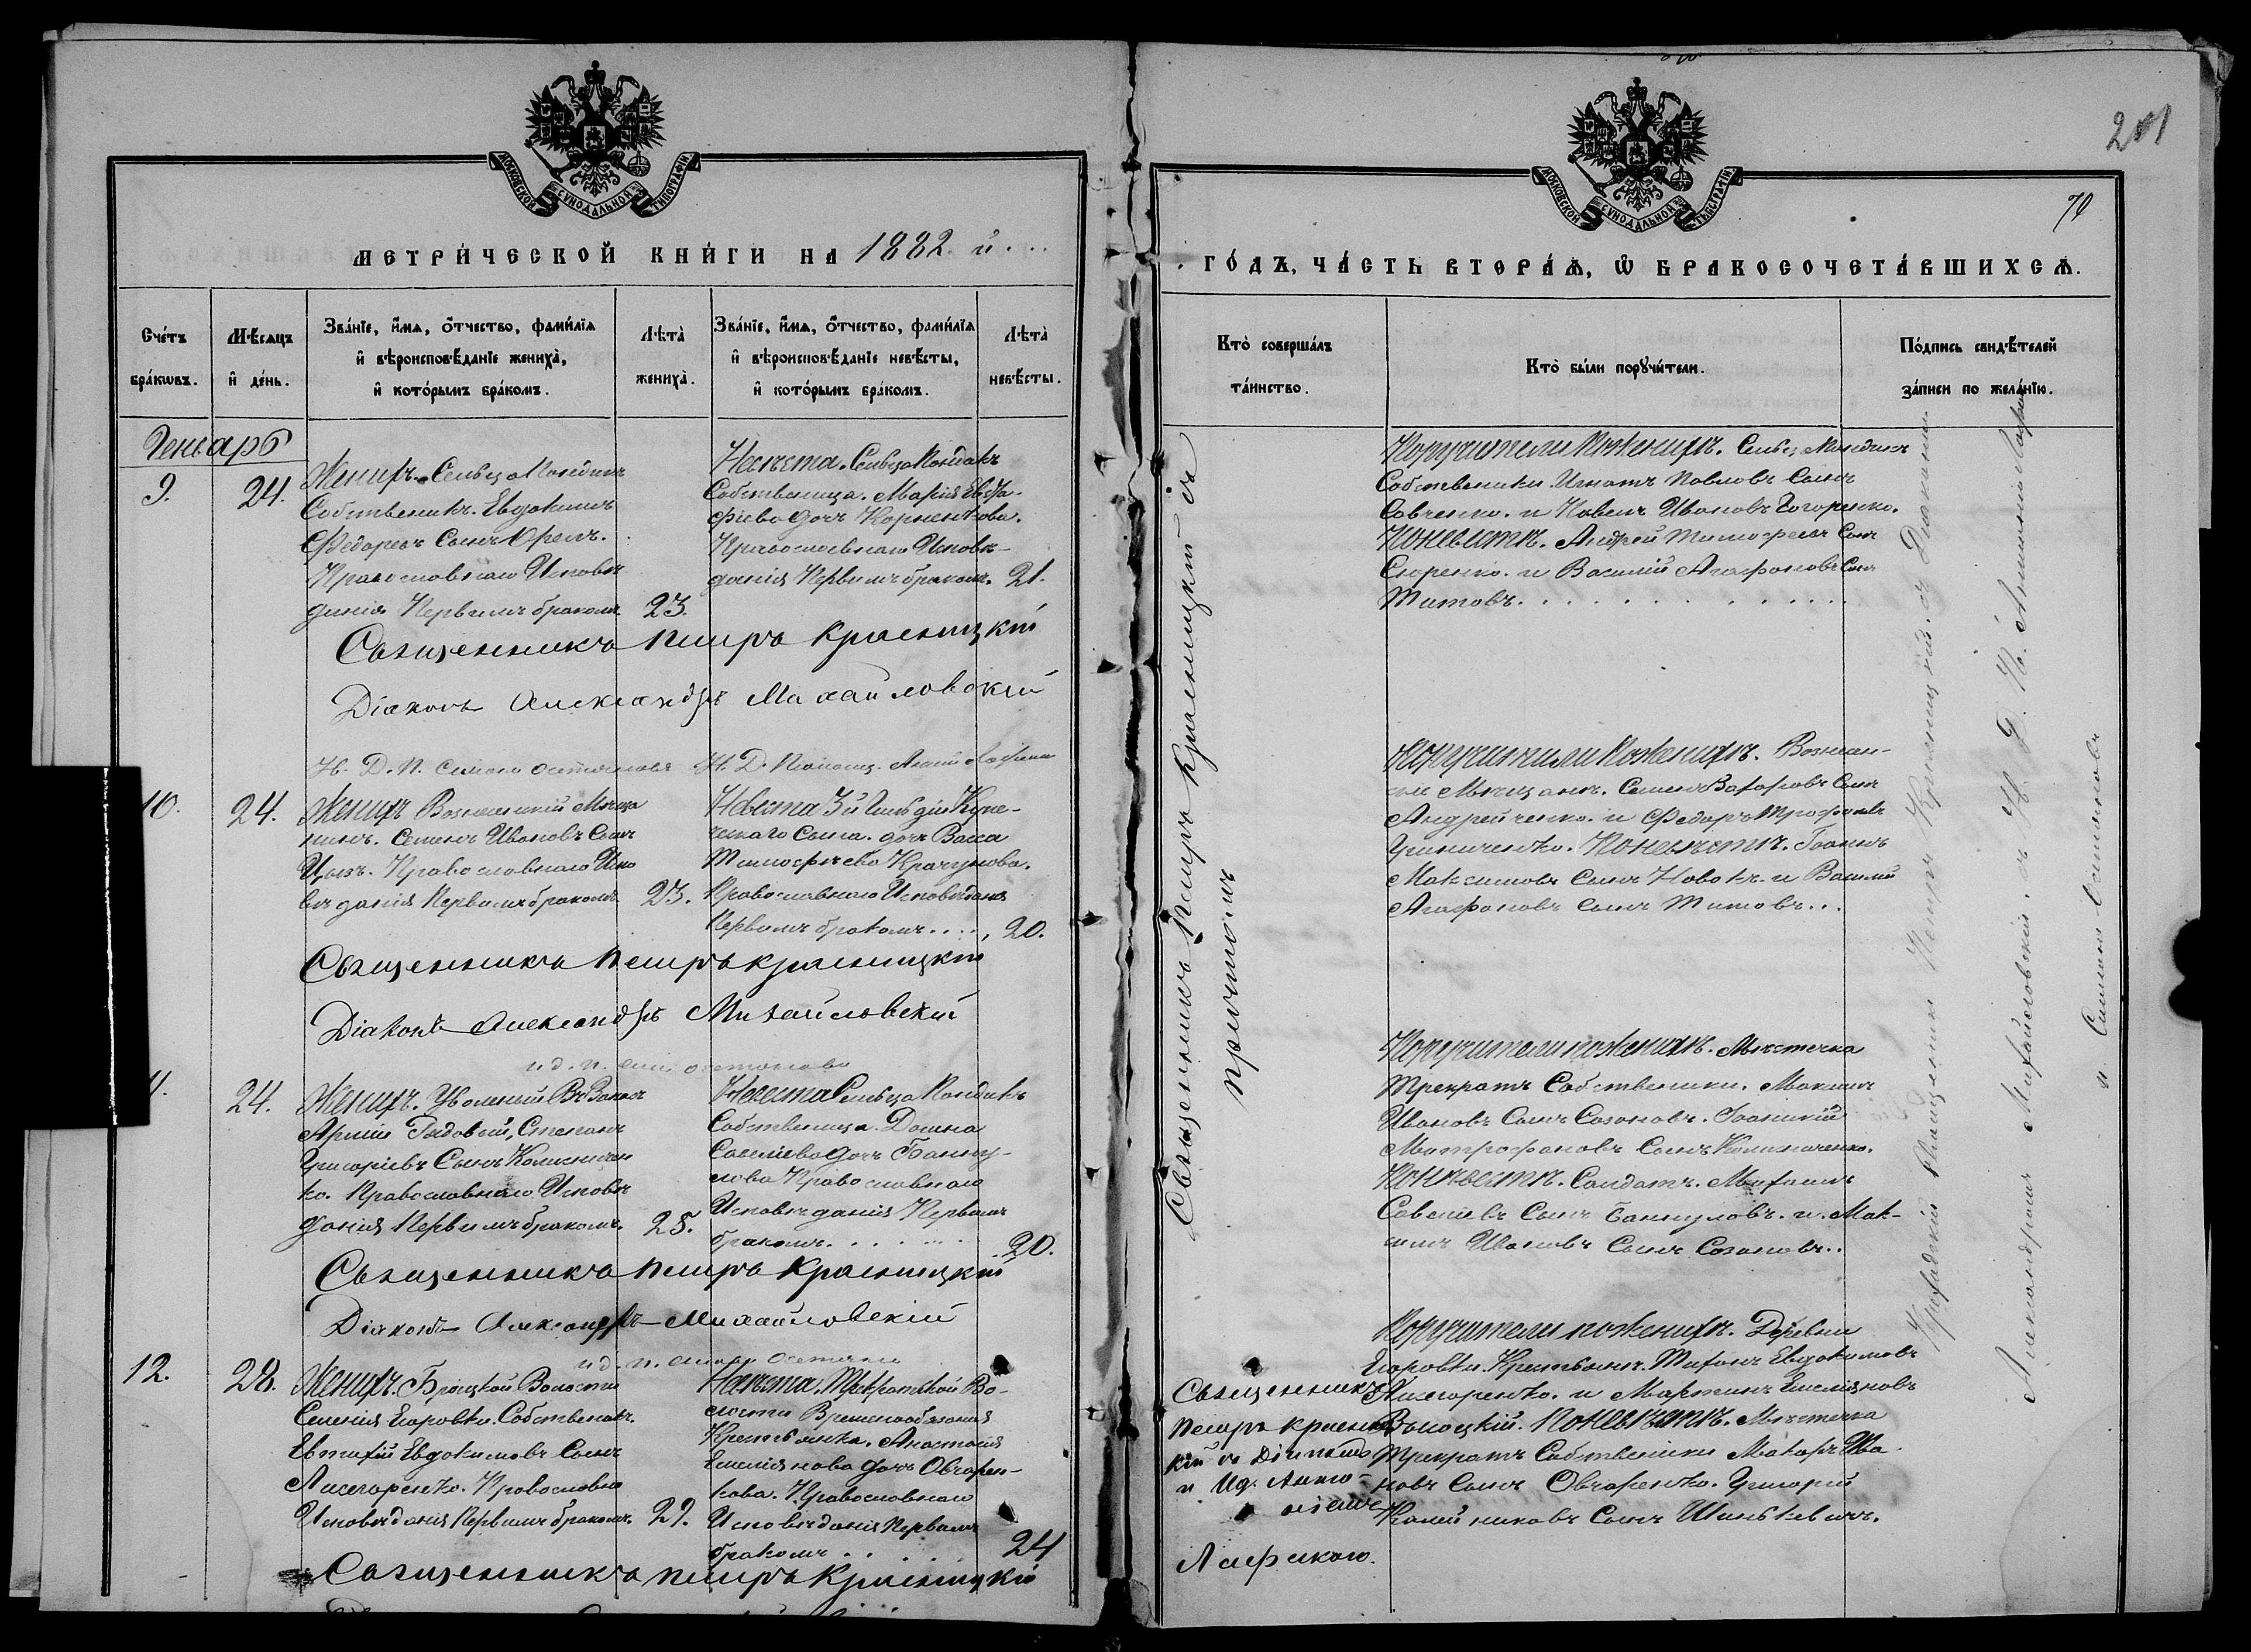 МОСКОВСКОЙ СѴНОДАЛЬНОЙ ТИПОГРАФІИ
МЕТРИ́ЧЕСКОЙ КНИ́ГИ НА 1882 й
Сче́тъ бра́кωвъ.
Мѣ́сяцъ и҆ де́нь.
Зва́нїе, и҆́мѧ, ѻ҆́тчество, фами́лїѧ
и҆ вѣроисповѣ́данїе женихà,
и҆ кото́рымъ бра́комъ.
Лѣтà женихà.
Зва́нїе, и҆́мѧ, ѻ҆́тчество, фами́лїѧ
и҆ вѣроисповѣ́данїе невѣ́сты,
и҆ кото́рымъ бра́комъ.
Лѣтà невѣ́сты.
Генварь
9.
24.
Женихъ. Сельца Кондакъ
Собственикъ. Евдокимъ
Федоровъ Сынъ
Православнаго Исповѣ
данія Первымъ бракомъ
23.
Невѣста. Сельца Кондакъ
Собственица. Марія
дочь Корненкова.
Православнаго Исповѣ-
данія Первымъ бракомъ.
21.
Священникъ Петръ Красницкій
Діаконъ Александръ Михайловскій
И. Д. П. Симеонъ Остояновъ
И. Д. Псаломщ.
10.
24.
Женихъ Вознесенскій Мѣща
нинъ. Семенъ Ивановъ Сынъ
Цымъ. Православнаго Испо
вѣданія Первымъ бракомъ
23.
Невѣста 3й Гильдіи Купе-
ческаго Сына. дочь Васса
Тимофѣева Крачунова.
Православнаго Исповѣданія
Первымъ бракомъ....
20.
Священникъ Петръ Красницкій
Діаконъ Александръ Михайловскій
и д. п. Сим. Остояновъ
11.
24.
Женихъ. Уволеный Въ Запасъ
Арміи Рядовый, Степанъ
Григоріевъ Сынъ Колисничен
ко. Православнаго Исповѣ
данія Первымъ бракомъ.
25.
Невѣста Сельца Кондакъ
Собственица. Домна
Савеліева дочь Банну-
лова Православнаго
Исповѣданія Первымъ
бракомъ.
20.
Священникъ Петръ Красницкій
Діаконъ Александръ Михайловскій
и д. п. Симеонъ Остояновъ
12.
28.
Женихъ. Брацкой Волости
Селенія Егоровки. Собственикъ.
Евтихій Евдокимовъ Сынъ
Православна
Исповѣданія Первымъ бракомъ.
29.
Невѣста. Трикратской Во-
лости Временообязаная
Крестьянка. Анастасія
Емеліянова дочь Овчарен-
кова. Православнаго
Исповѣданія Первымъ
бракомъ
24
Священникъ Петръ Красницкій
201
70
МОСКОВСКОЙ СѴНОДАЛЬНОЙ ТИПОГРАФІИ
ГО́ДЪ, ЧА́СТЬ ВТОРА́Ѧ, Ѽ БРАКОСОЧЕТА́ВШИХСѦ.
Кто̀ соверша́лъ та́инство.
Кто̀ бы́ли порꙋчи́тели.
По́дпись свидѣ́телей
за́писи по жела́нїю.
Священникъ Петръ Красницкій съ
причтомъ
Поручители по женихѣ. Сельца Кондакъ
Собственики Игнатъ Павловъ Сынъ
Савченко. и Павелъ Ивановъ Гогоренко.
По невѣстѣ. Андрей Тимофеевъ Сынъ
и Василій Агафоновъ Сынъ
Титовъ.
Поручители по женихѣ. Вознесен-
скіе Мѣщане. Семенъ Сынъ
Андрейченко. и Федоръ Трофимовъ
Гриниченко. По невѣстѣ. Іоаннъ
Максимовъ Сынъ Новакъ. и Василій
Агафоновъ Сынъ Титовъ...
Поручители по женихѣ. Мѣстечка
Трикратъ Собственики. Максимъ
Ивановъ Сынъ Созоновъ. Іоаникій
Митрофановъ Сынъ
По невѣстѣ. Солдатъ. Михаилъ
Савелиевъ Сынъ Баннуловъ. и. Мак-
симъ Ивановъ Сынъ Созоновъ..
Священникъ
Петръ Красниц
кій съ Діакономъ
и Ид.
Поручители по женихѣ. Деревни
Егоровки. Крестьяне. Евдокимовъ
и Мартинъ Емеліяновъ
По невѣстѣ. Мѣстечка
Трикратъ Собственики Макаръ Ива
новъ Сынъ Овчаренко. Григорій
Сынъ Шинькевичъ.
Приходскій Священникъ Петръ Красницкій. съ Діакономъ
Александромъ Михайловскій. съ И. Д. П.
и Симеонъ Остояновъ